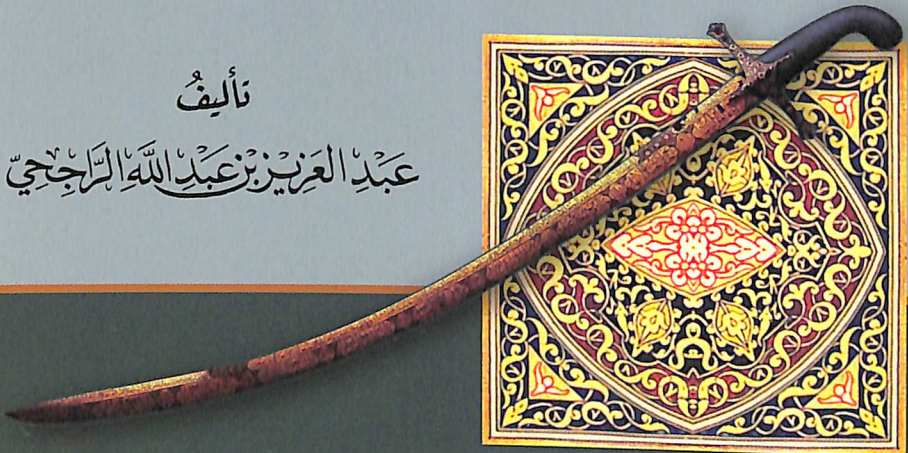 تأليفُ
عَبْدِ العَزِيْزِ بْنِ عَبْدِ اللَّهِ الرَّاجِحِيّ